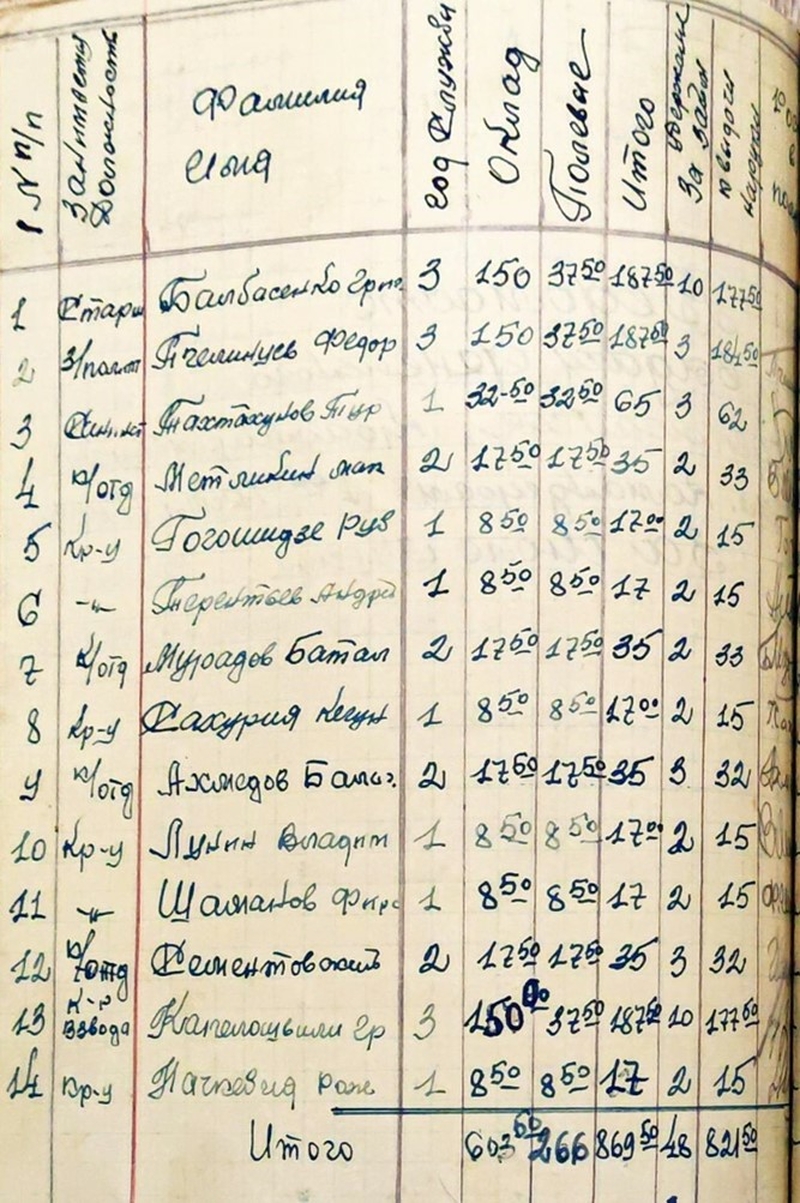 № п/п Занимаем Должность Фамилия Имя год Службы Оклад Полевые Итого Удержание За займ к выдачи наруки
1 Старш Балбасенко Григ. 3 150 37 50 187 50 10 177 50
2 З/полит Пчелинцев Федор 3 150 37 50 187 50 3 184 50
3 Тахтахунов Тур 1 32-50 32 50 65 3 62
4 к/отд Метликин мак 2 17 50 17 50 35 2 33
5 Кр-у Гогошидзе Рув 1 8 50 8 50 17 00 2 15
6 -"- Терентьев Андрей 1 8 50 8 50 17 2 15
7 К/отд Мурадов Батал 2 17 50 17 50 35 2 33
8 Кр-у Сахурия 1 8 50 8 50 17 00 2 15
9 к/отд Ахмедов Балаг. 2 17 50 17 50 35 3 32
10 Кр-у Лунин Владим 1 8 50 8 50 17 00 2 15
11 -"- Шаманов Фир 1 8 50 8 50 17 2 15
12 к/отд Сементовский 2 17 50 17 50 35 3 32
13 К-р взвода Капелошвили Гр 3 150 00 37 50 187 50 10 177 50
14 Кр-у Начкевия Раж 1 8 50 8 50 17 2 15
Итого 603 50 266 869 50 48 821 50